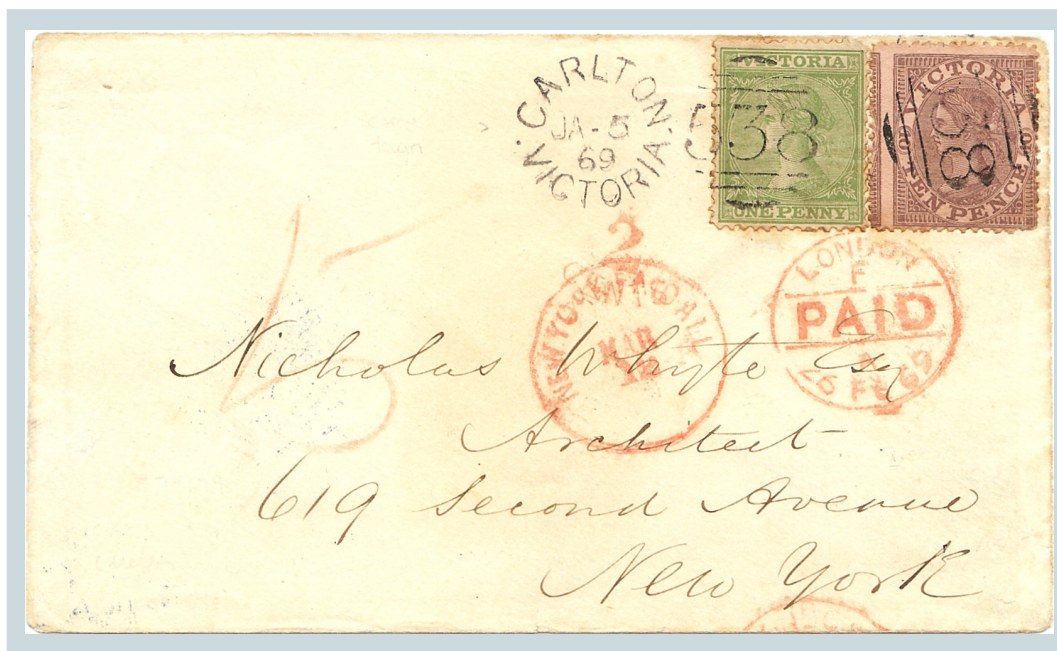 CARLTON
JA-5
69
VICTORIA
VICTORIA
538
ONE PENNY
VICTORIA
TEN PENCE
2
NEW YORK PAID ALL
MAR
12
LONDON
F
PAID
26 FE 69
5
Nicholas Whyte Esq
Architect
619 Second Avenue
New York